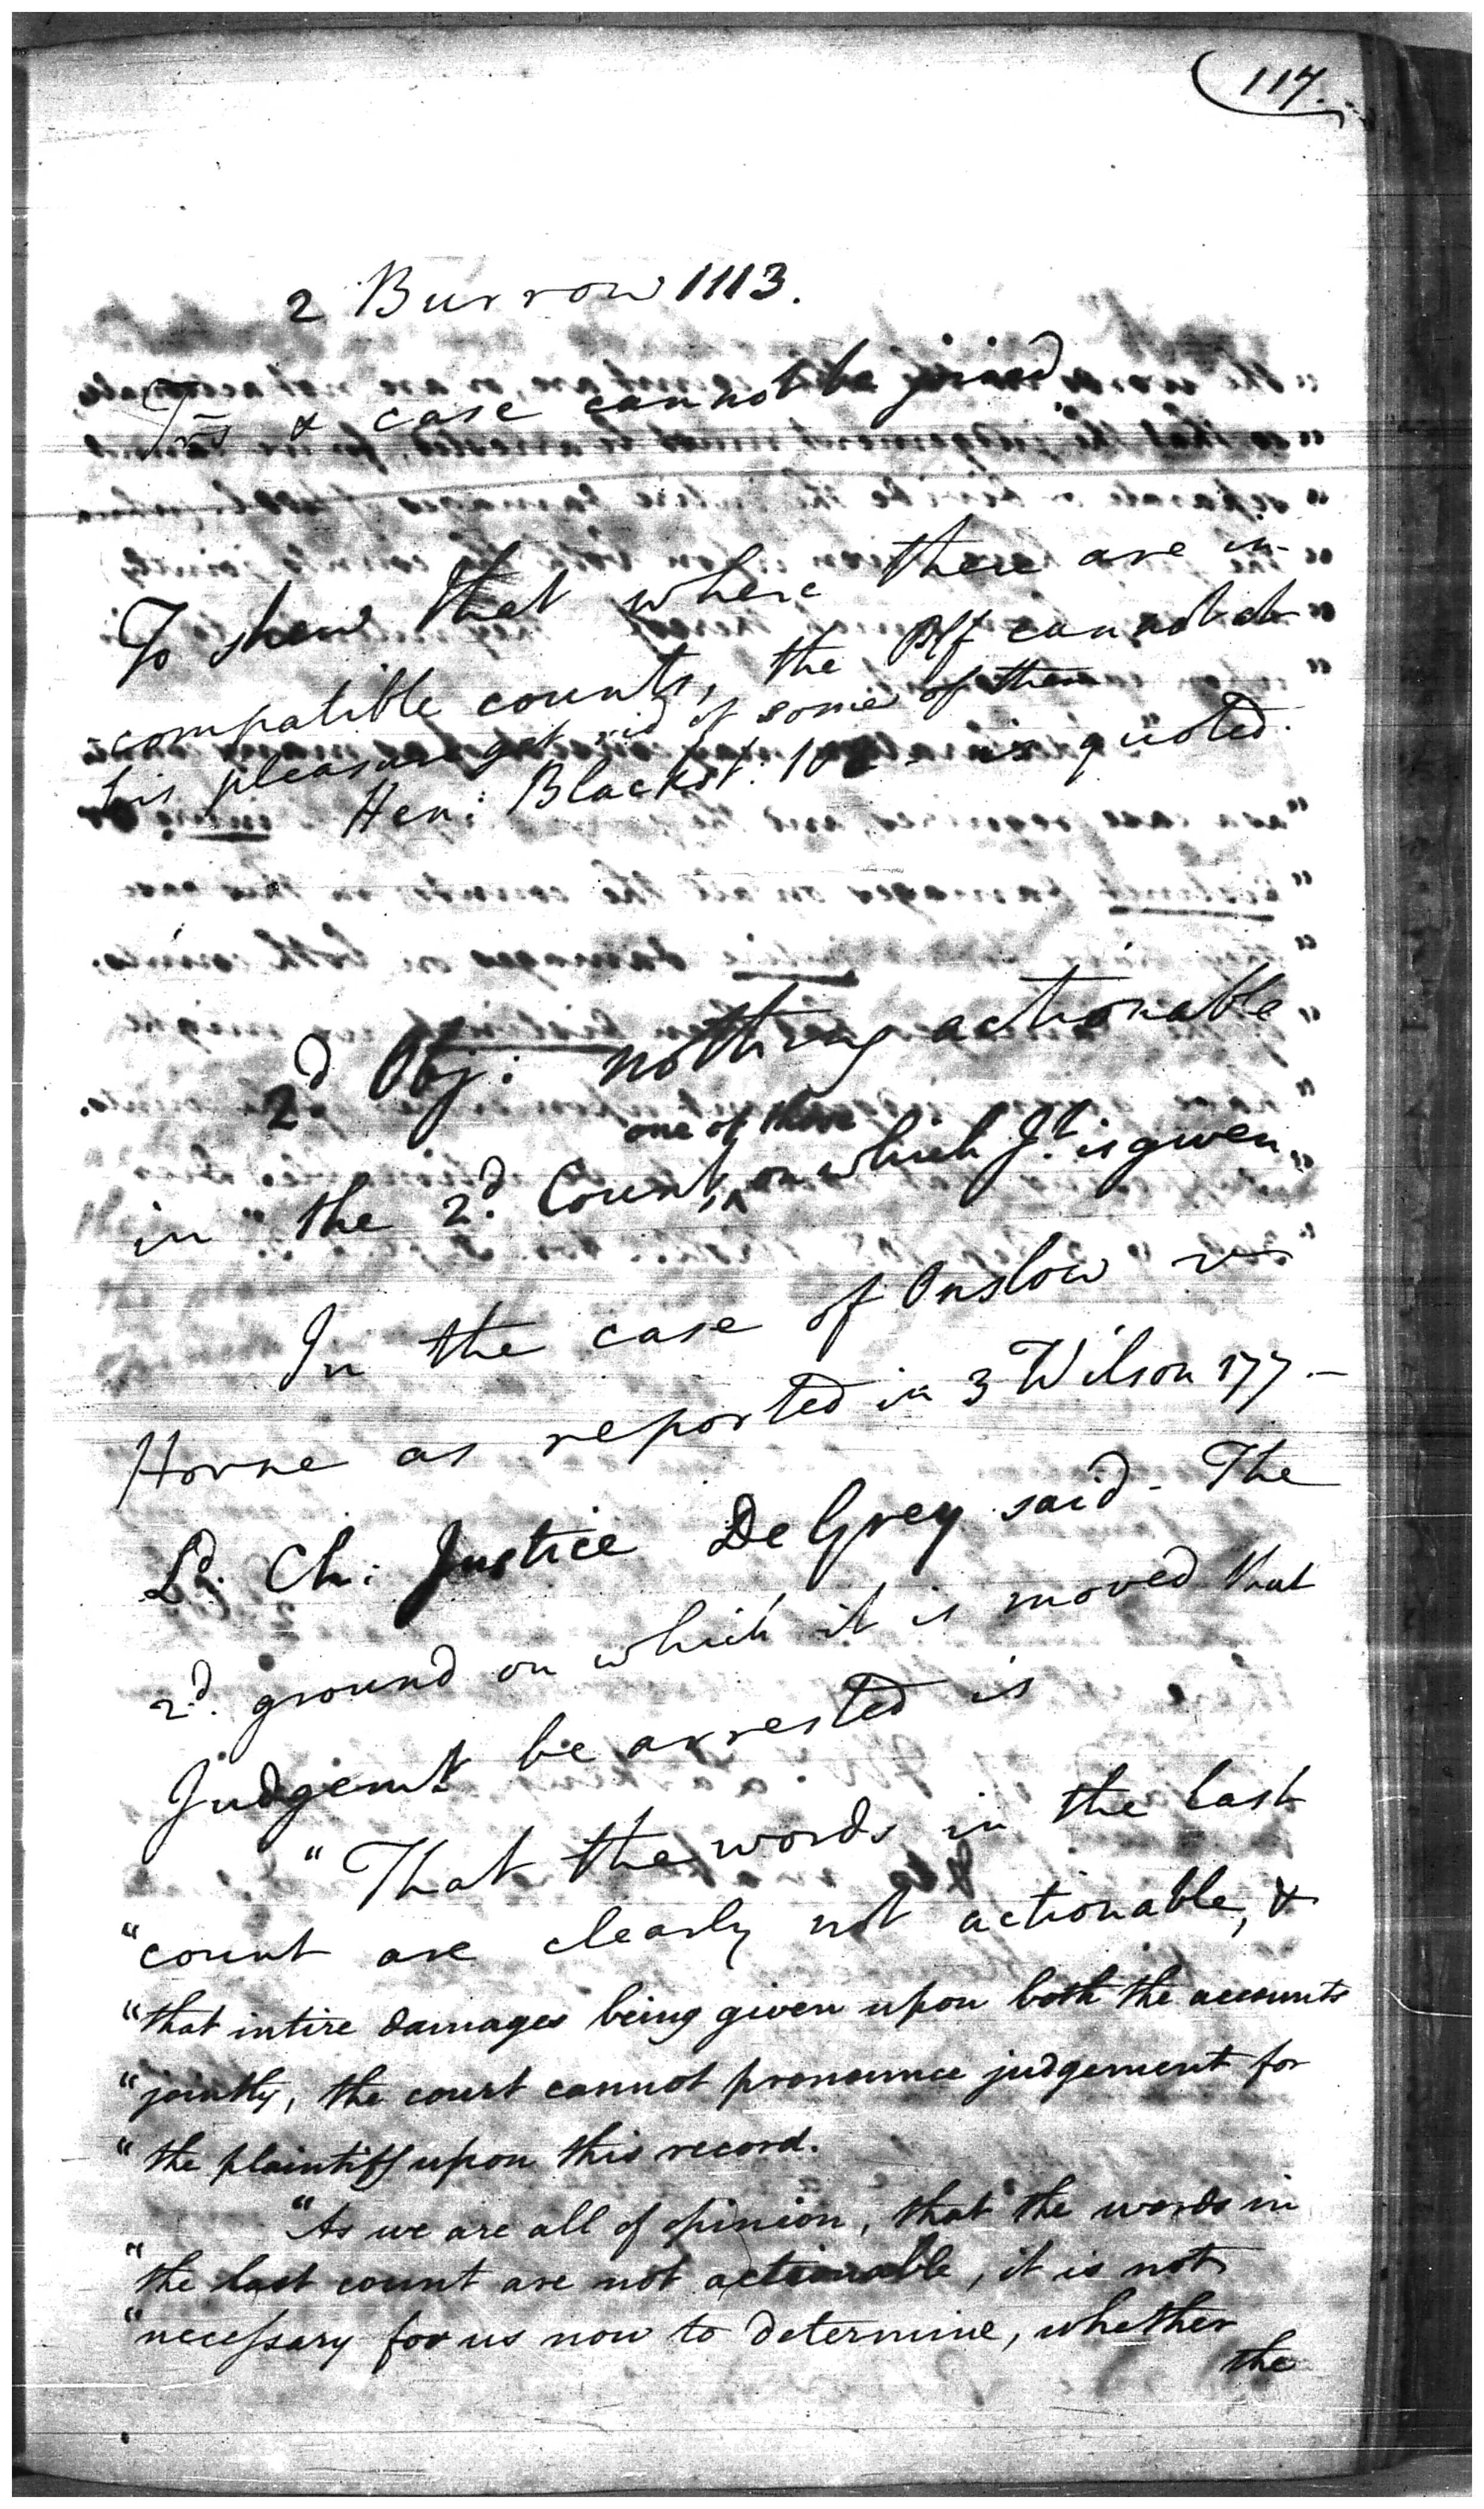 117.
2 Burrow 1113.
Trs & case cannot be joined
To shew that where there are in-
-compatible counts, the Plf cannot at
his pleasure get rid of some of them
Hen: Blackst: 108 - is quoted.
2d Obj: nothing actionable
one of those
in the 2d. Count, ^ on which Jt. is given,
In the case of Onslow vs
Horne as reported in 3 Wilson 177 -
Ld. Ch: Justice De Grey said - The
2d. ground on which it is moved that
Judgemt be arrested is
"That the words in the last
"count are clearly not actionable, &
"that intire damages being given upon both the accounts
"jointly, the court cannot pronounce judgement for
"the plaintiff upon this record.
"As we are all of opinion, that the words in
"the last count are not actionable, it is not
"necessary for us now to determine, whether
the